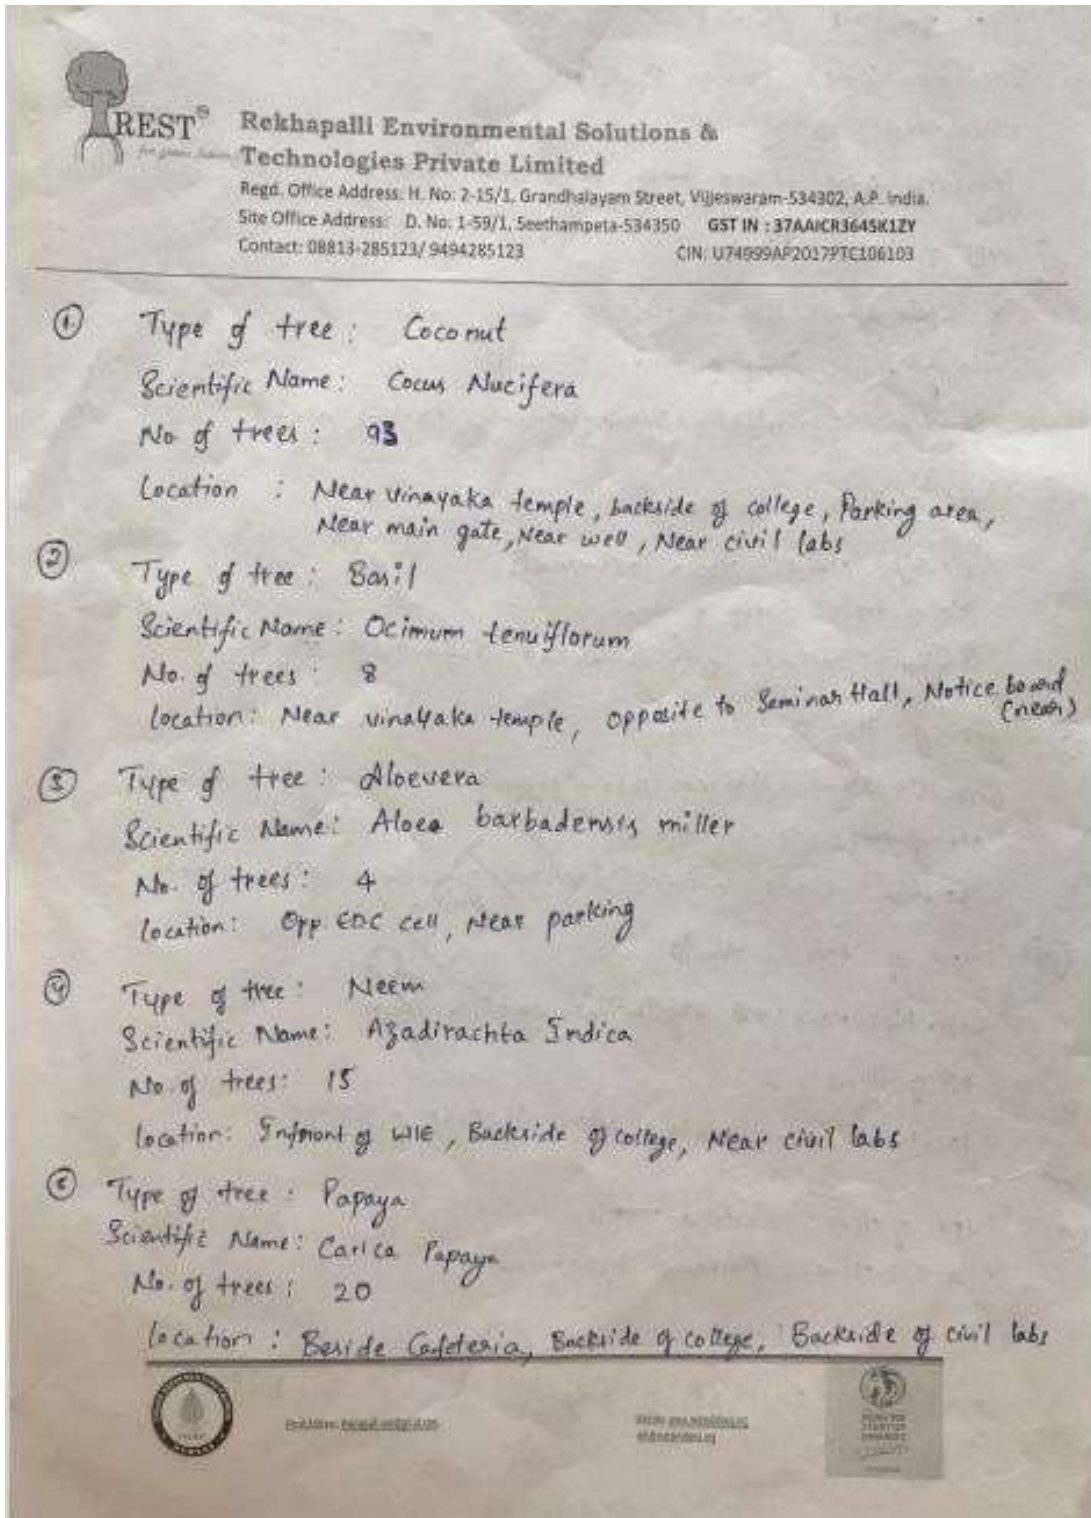 REST®
Rekhapalli Environmental Solutions &
Technologies Private Limited
Regd. Office Address: H. No: 2-15/1, Grandhalayam Street, Vijjeswaram-534302, A.P. India.
Site Office Address: D. No: 1-59/1, Seethampeta-534350 GST IN : 37AAICR3645K1ZY
Contact: 08813-285123/ 9494285123 CIN: U74999AP2017PTC106103
① Type of tree : Coconut
Scientific Name : Cocus Nucifera
No of trees : 93
Location : Near vinayaka temple, backside of college, Parking area,
Near main gate, Near well, Near civil labs
② Type of tree : Basil
Scientific Name : Ocimum tenuiflorum
No. of trees : 8
location : Near vinayaka temple, opposite to Seminar Hall, Notice board
(near)
③ Type of tree : Aloevera
Scientific Name : Aloea barbadensis miller
No. of trees : 4
location : Opp EDC cell, Near parking
④ Type of tree : Neem
Scientific Name : Azadirachta Indica
No. of trees : 15
location : Infront of WIE, Backside of college, Near civil labs
⑤ Type of tree : Papaya
Scientific Name : Carica Papaya
No. of trees : 20
location : Beside Cafeteria, Backside of college, Backside of civil labs